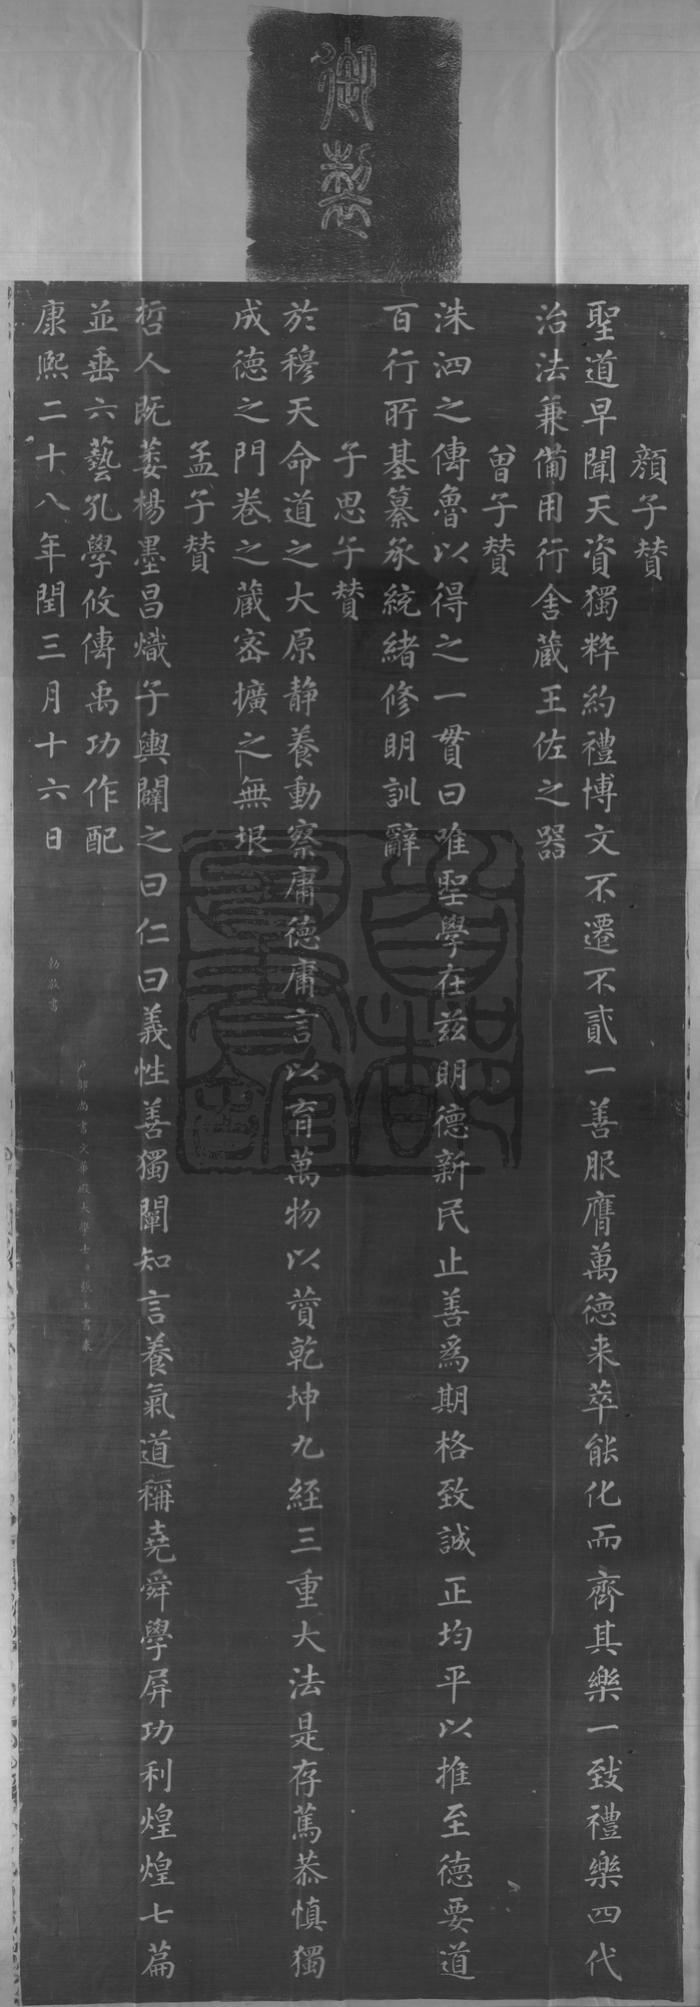 御製
顏子贊
聖道早聞天資獨粹約禮博文不遷不貳一善服膺萬德来萃能化而齊其樂一致禮樂四代
治法兼備用行舍藏王佐之器
曾子贊
洙泗之傳魯以得之一貫曰唯聖學在兹明德新民止善爲期格致誠正均平以推至德要道
百行所基纂承統緒修明訓辭
子思子贊
於穆天命道之大原静養動察庸德庸言以育萬物以贊乾坤九經三重大法是存篤恭慎獨
成德之門卷之藏密擴之無垠
孟子贊
哲人既萎楊墨昌熾子輿闢之曰仁曰義性善獨闡知言養氣道稱堯舜學屏功利煌煌七篇
並垂六藝孔學攸傳禹功作配
康熙二十八年閏三月十六日
戶部尚書文華殿大學士張玉書奉
勅敬書